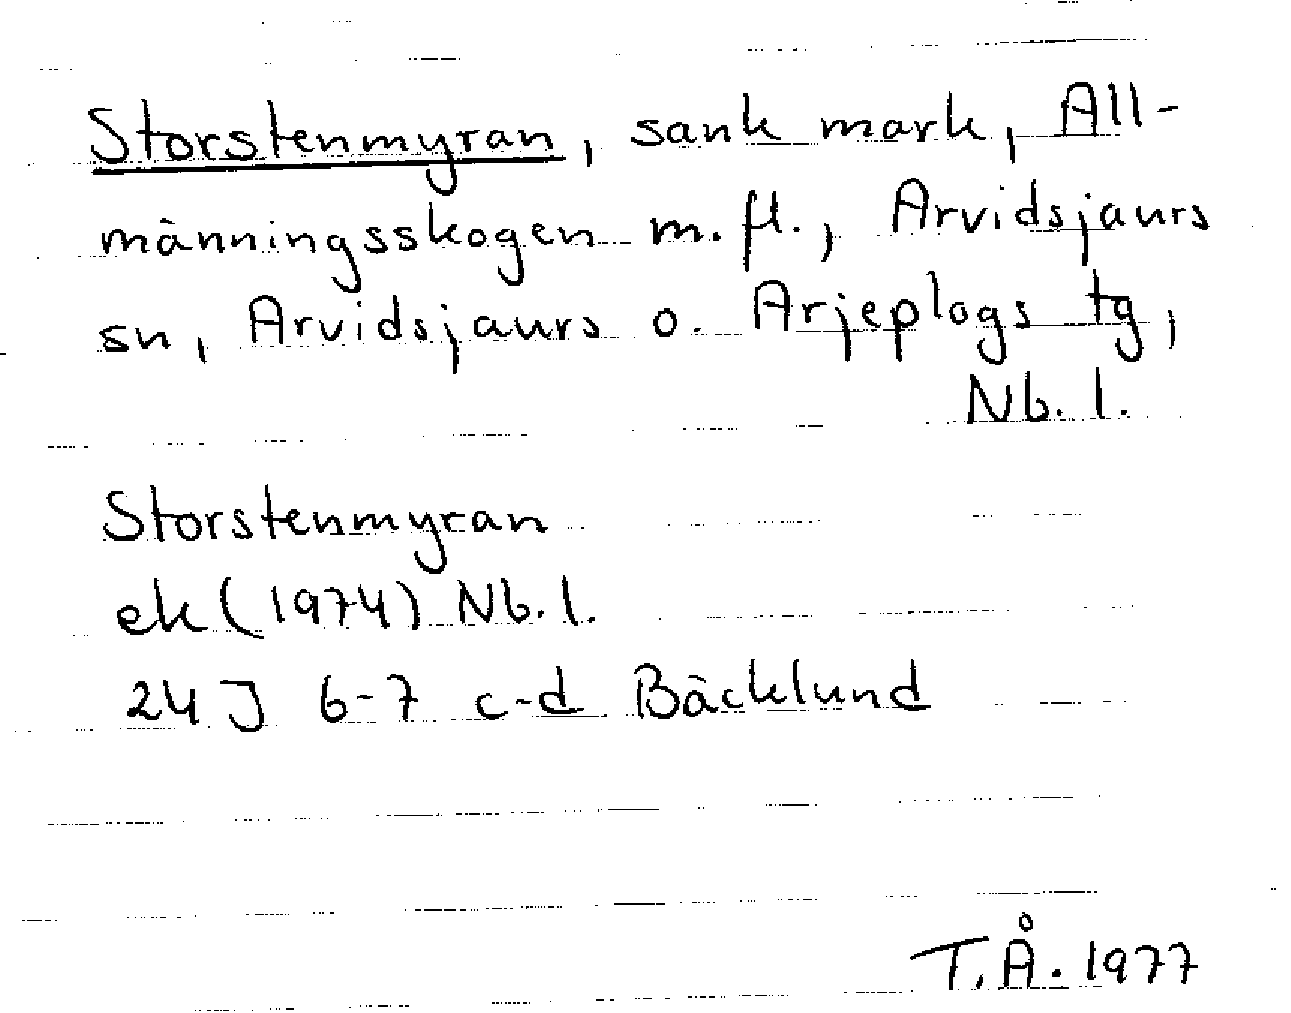 Storstenmyran, sank mark, All-
männingsskogen m.fl., Arvidsjaurs
sn, Arvidsjaurs o. Arjeplogs tg,
Nb. l.
Storstenmyran
ek (1974) Nb. l.
24 J 6-7 c-d Bäcklund
T.Å. 1977